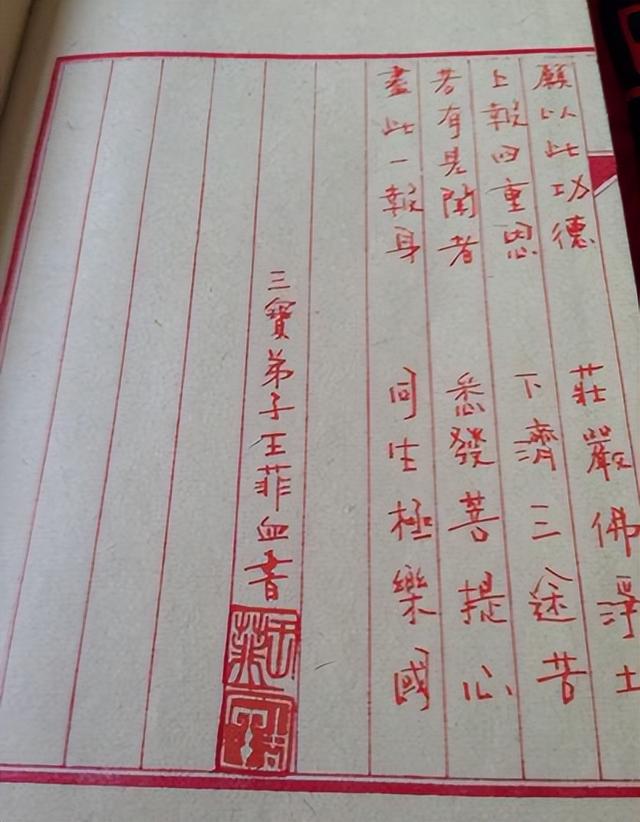 願以此功德 莊嚴佛淨土
上報四重恩 下濟三途苦
若有見聞者 悉發菩提心
盡此一報身 同生極樂國
三寶弟子王菲血書
王菲